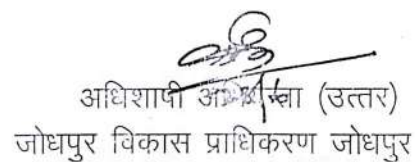 अधिशाषी अभियन्ता (उत्तर)
जोधपुर विकास प्राधिकरण जोधपुर